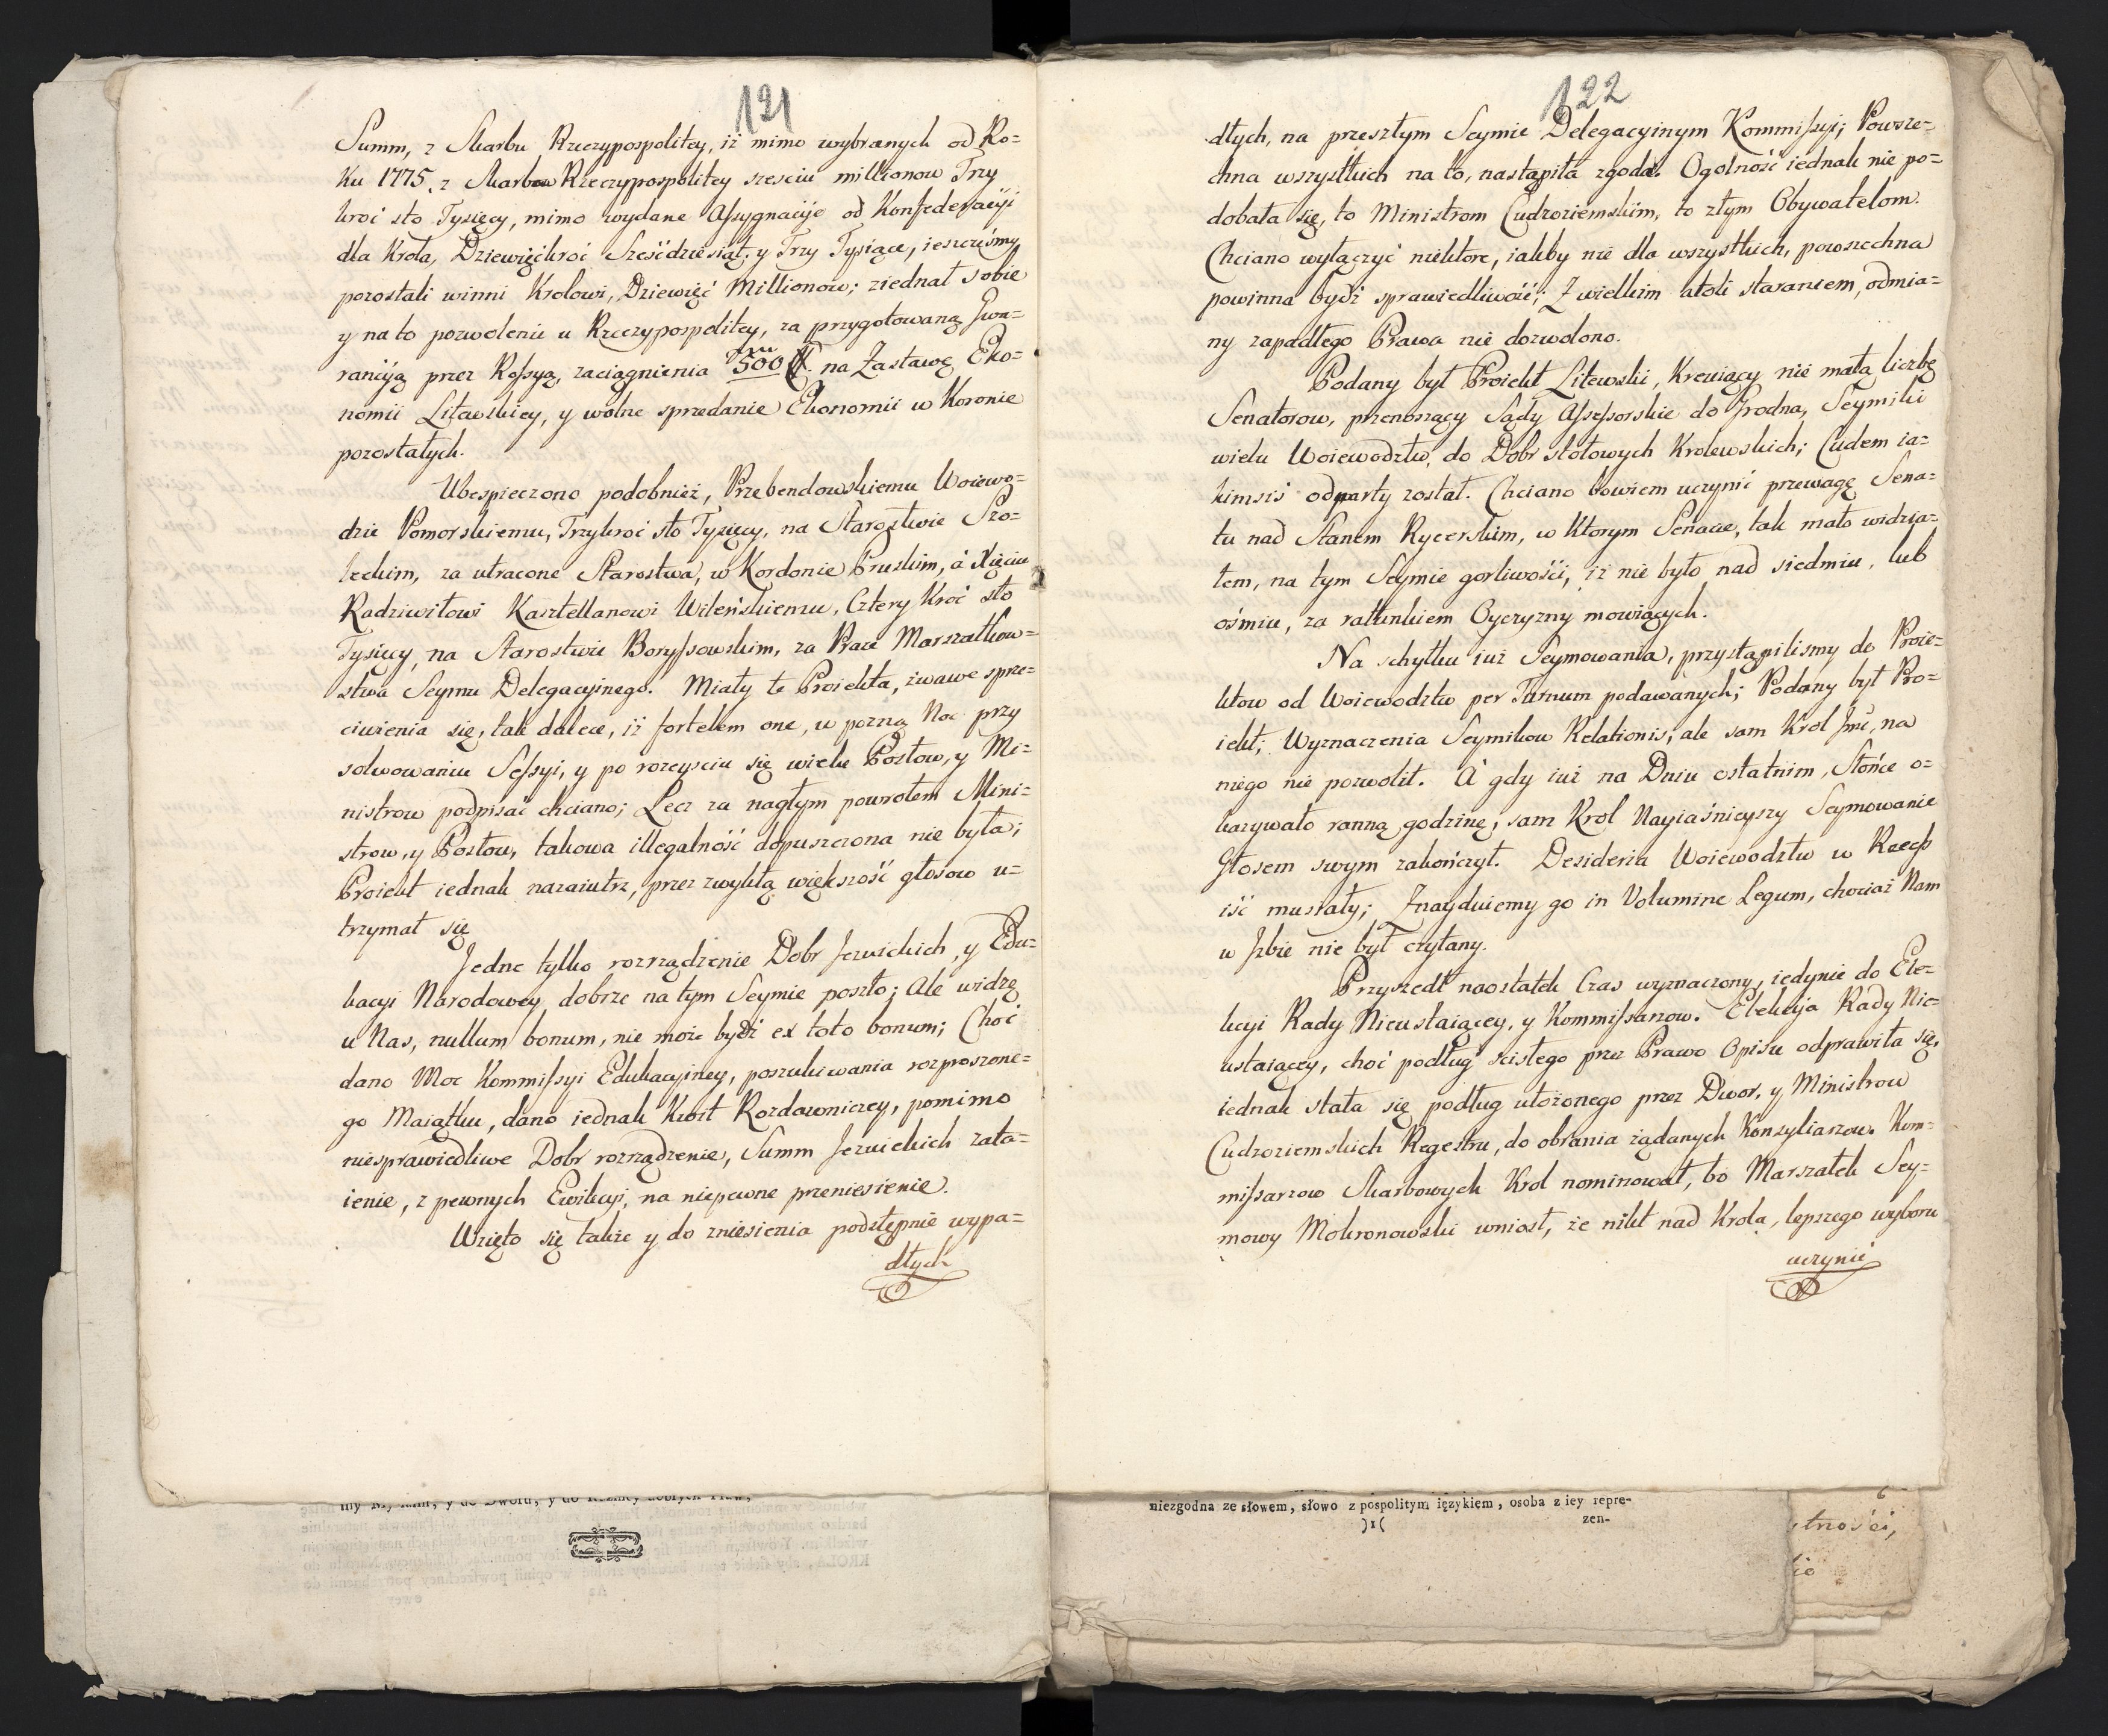 121
Summ, z Skarbu Rzeczypospolitey, iż mimo wybranych od Ro=
ku 1775. z Skarbu Rzeczypospolitey szesciu millionow Trzy
kroć sto Tysięcy, mimo wydane Assygnacÿe od Konfederacÿi
dla Krola, Dziewięćkroć Sześćdziesiąt, y Trzy Tysiące, ieszcześmy
pozostali winni Krolowi, Dziewięć Millionow; ziednał sobie
y na to pozwolenie u Rzeczypospolitey, za przygotowaną Gwa=
rancÿą przez Rossyą, zaciągnienia 500 na Zastawę Eko=
nomii Litewskiey, y wolne sprzedanie Ekonomii w Koronie
pozostałych.
Ubespieczono podobnież, Przebendowskiemu Woiewo=
dzie Pomorskiemu, Trzykroć sto Tysięcy, na Starostwie Szo=
leckim, za utracone Starostwa, w Kordonie Pruskim, á Xięciu
Radziwiłowi Kasztellanowi Wileńskiemu, Cztery Kroć sto
Tysięcy, na Starostwie Boryssowskim, za Prace Marszałkow=
stwa Seymu Delegacyinego. Miały te Proiekta, żwawe sprze=
ciwienia się, tak dalece, iż fortelem one, w pozną Noc przy
solwowaniu Sessyi, y po rozeysciu się wielu Posłow, y Mi=
nistrow podpisać chciano; Lecz za nagłym powrotem Mini=
strow, y Posłow, takowa illegalność dopuszczona nie była;
Proiekt iednak nazaiutrz, przez zwykłą większość głosow u=
trzymał się
Jedne tylko rozrządzenie Dobr Jezuickich, y Edu=
kacyi Narodowey, dobrze na tym Seymie poszło; Ale widzę
u Nas, nullum bonum, nie może bydź ex toto bonum; Choć
dano Moc Kommissyi Edukacyiney, poszukiwania rozproszone=
go Maiątku, dano iednak Kwit Rozdawniczey, pomimo
niesprawiedliwe Dobr rozrządzenie, Summ Jezuickich zata=
ienie, z pewnych Ewikcyi, na niepewne przeniesienie.
Wzięto się także y do zniesienia podstępnie wypa=
dłych
122
dłych, na przeszłym Seymie Delegacyinym Kommissyi; Powsze=
chna wszystkich na to, nastąpiła zgoda. Ogolność iednak nie po=
dobała się, to Ministrom Cudzoziemskim, to złym Obywatelom.
Chciano wyłączyć niektore, iakby nie dla wszystkich, powszechna
powinna bydź sprawiedliwość; Z wielkim atoli staraniem, odmia=
ny zapadłego Prawa nie dozwolono.
Podany był Proiekt Litewski, Kreuiący nie małą liczbę
Senatorow, przenoszący Sądy Assessorskie do Grodna, Seymiki
wielu Woiewodztw, do Dobr stołowych Krolewskich; Cudem ia=
kimsiś odparty został. Chciano bowiem uczynić przewagę Sena=
tu nad Stanem Rycerskim, w Ktorym Senacie, tak mało widzia=
łem, na tym Seymie gorliwości, iż nie było nad siedmiu, lub
ośmiu, za ratunkiem Oyczyzny mowiących.
Na schyłku iuż Seymowania, przystąpilismy do Proie=
ktow od Woiewodztw per Turnum podawanych; Podany był Pro=
iekt, Wyznaczenia Seymikow Relationis, ale sam Krol Jmć, na
niego nie pozwolił. A gdy iuż na Dniu ostatnim, Słońce o=
kazywało ranną godzinę, sam Krol Nayiaśnieyszy Seymowanie
Głosem swym zakończył. Desideria Woiewodztw w Recess
iść musiały; Znayduiemy go in Volumine Legum, chociaż Nam
w Jzbie nie był czytany.
Przyszedł naostatek Czas wyznaczony, iedynie do Ele=
kcyi Rady Nieustaiącey, y Kommissarzow. Elekcÿa Rady Nie=
ustaiącey, choć podług scisłego przez Prawo Opisu odprawiła się,
iednak stała się podług ułożonego przez Dwor, y Ministrow
Cudzoziemskich Regestru, do obrania żądanych Konsyliarzow. Kom=
missarzow Skarbowych Krol nominował, bo Marszałek Sey=
mowy Mokronowski wniosł, że nikt nad Krola, lepszego wyboru
uczynić
niezgodna ze słowem, słowo z pospolitym ięzykiem, osoba z iey repre-
)1( zen-